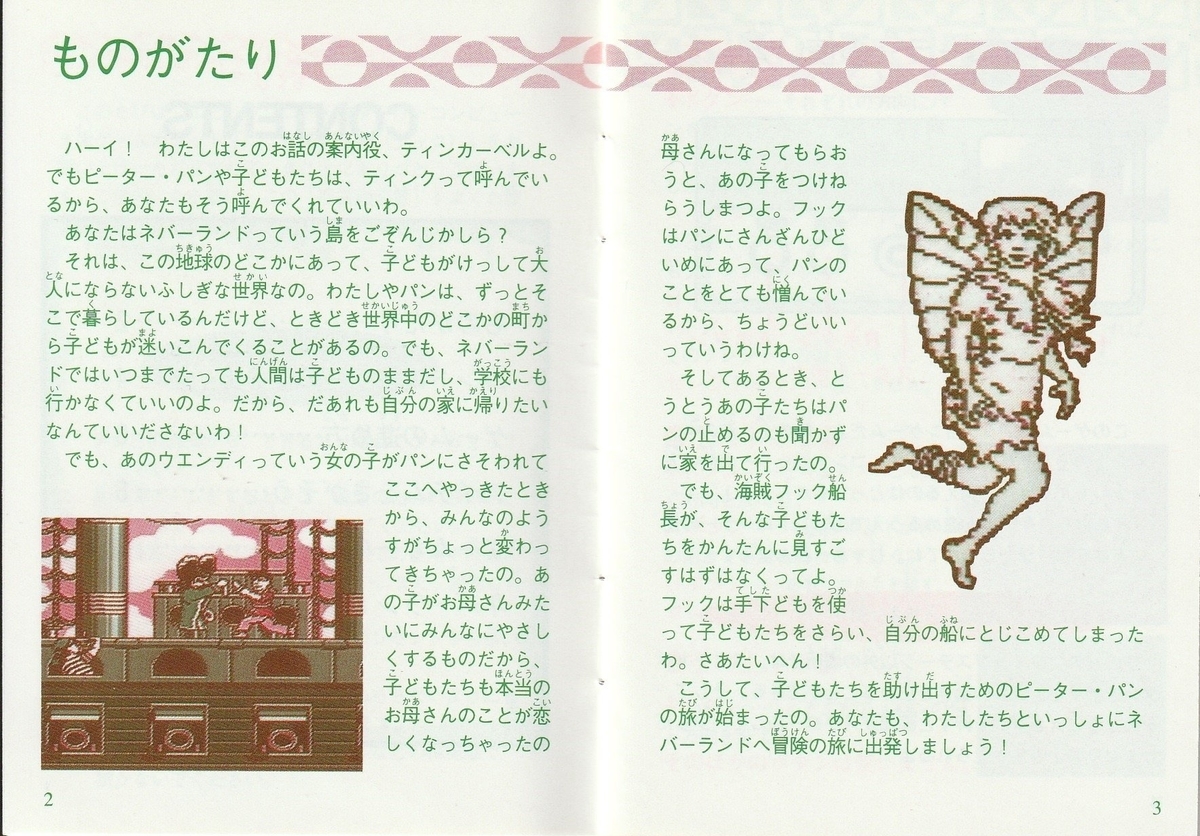 ものがたり
ハーイ！　わたしはこのお話の案内役、ティンカーベルよ。
でもピーター・パンや子どもたちは、ティンクって呼んでい
るから、あなたもそう呼んでくれていいわ。
あなたはネバーランドっていう島をごぞんじかしら？
それは、この地球のどこかにあって、子どもがけっして大
人にならないふしぎな世界なの。わたしやパンは、ずっとそ
こで暮らしているんだけど、ときどき世界中のどこかの町か
ら子どもが迷いこんでくることがあるの。でも、ネバーラン
ドではいつまでたっても人間は子どものままだし、学校にも
行かなくていいのよ。だから、だあれも自分の家に帰りたい
なんていいださないわ！
でも、あのウエンディっていう女の子がパンにさそわれて
ここへやっきたとき
から、みんなのよう
すがちょっと変わっ
てきちゃったの。あ
の子がお母さんみた
いにみんなにやさし
くするものだから、
子どもたちも本当の
お母さんのことが恋
しくなっちゃったの
2
母さんになってもらお
うと、あの子をつけね
らうしまつよ。フック
はパンにさんざんひど
いめにあって、パンの
ことをとても憎んでい
るから、ちょうどいい
っていうわけね。
そしてあるとき、と
うとうあの子たちはパ
ンの止めるのも聞かず
に家を出て行ったの。
でも、海賊フック船
長が、そんな子どもた
ちをかんたんに見すご
すはずはなくってよ。
フックは手下どもを使
って子どもたちをさらい、自分の船にとじこめてしまった
わ。さあたいへん！
こうして、子どもたちを助け出すためのピーター・パン
の旅が始まったの。あなたも、わたしたちといっしょにネ
バーランドへ冒険の旅に出発しましょう！
3